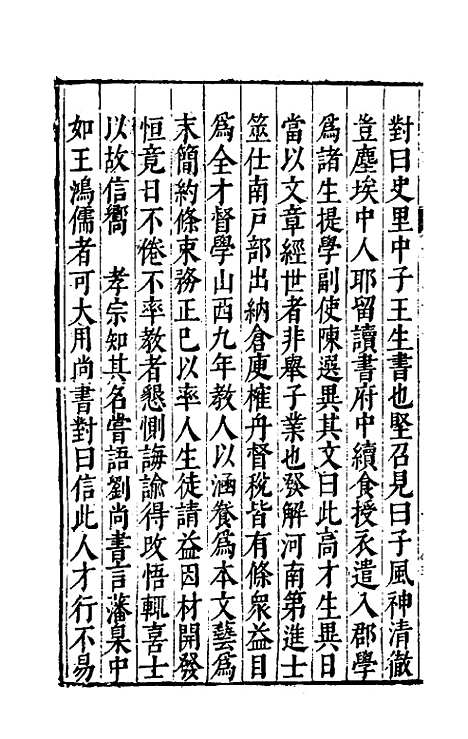 對曰史里中子王生書也堅召見曰子風神清徹
豈塵埃中人耶留讀書府中續食授衣遣入郡學
爲諸生提學副使陳選異其文曰此高才生異日
當以文章經世者非舉子業也發解河南第進士
筮仕南戸部出納倉庾榷舟督稅皆有條衆益目
爲全才督學山西九年教人以涵養爲本文藝爲
末簡約條束務正已以率人生徒請益因材開發
恒竟日不倦不率教者懇惻誨諭得攺悟輒喜士
以故信嚮　孝宗知其名嘗語劉尚書言藩臬中
如王鴻儒者可大用尚書對曰信此人才行不易